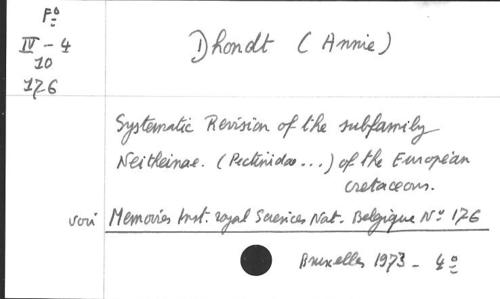 Fº
IV - 4
10
176
Dhondt (Annie)
Systematic Revision of the subfamily
Neitheinae. (Pectinidae...) of the European
cretaceous.
voir Memoires Inst. royal Sciences Nat. Belgique Nº 176
Bruxelles 1973 - 4º